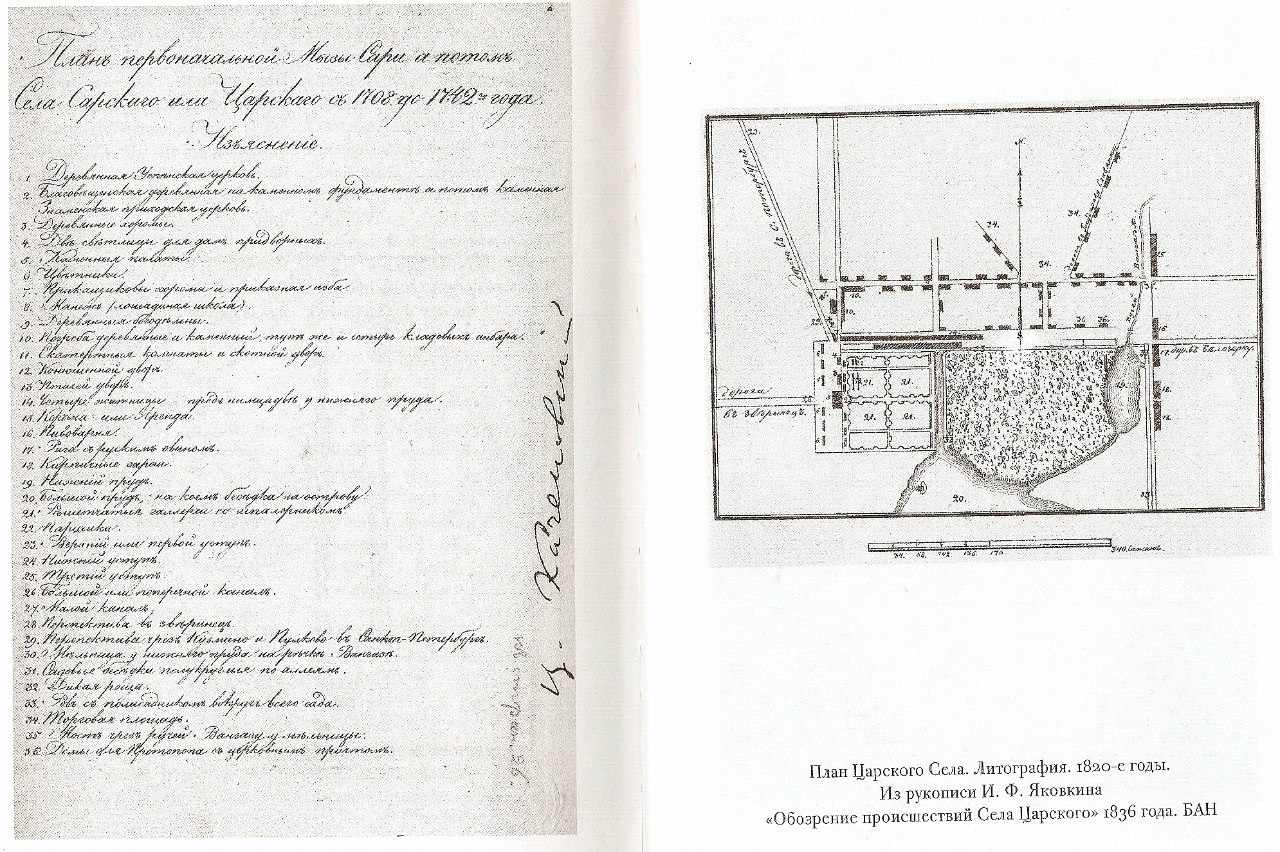 Планъ первоначальной Мызы Сари а потомъ
Села Сарскаго или Царскаго съ 1708 до 1742го года.
Изъясненіе.
1. Деревянная Успенская церковь.
2. Благовѣщенская деревянная на каменномъ фундаментѣ а потомъ каменная
Знаменская приходская церковь.
3. Деревянные хоромы.
4. Двѣ свѣтлицы для дамъ придворныхъ.
5. палаты.
6. Цвѣтники.
7. Прикащиковы хоромы и приказная изба.
8. Манежъ (лошадиная школа).
9. Деревянныя богодѣльны.
10. Погреба деревянные и каменный, тутъ же и четыре кладовыхъ анбара.
11. Скатертныя комнаты и скотной дворъ.
12. Конюшенной дворъ.
13. дворъ.
14. Четыре житницы у нижняго пруда.
15. или Аренда.
16. Пивоварня.
17. Рига съ рускимъ овиномъ.
18. Кирпичные сараи.
19. Нижній прудъ.
20. Большой прудъ, на коемъ бесѣдка на острову.
21. галлереи со шпалерникомъ
22. Парники.
23. Верхній или первой уступъ.
24. Нижній уступъ.
25. Третій уступъ.
26. Большой или поперечной каналъ.
27. Малой каналъ.
28. Перспектива въ звѣринецъ.
29. Перспектива чрезъ Кузмино и Пулково въ Санкт-Петербургъ.
30. Мѣльница у нижняго пруда на рѣчкѣ Вангази.
31. Садовые бесѣдки полукруглые по аллеямъ.
32. Дикая роща.
33. Ровъ съ полисадникомъ вокругъ всего сада.
34. Торговая площадь.
35. Мостъ чрезъ ручей Вангазу у мѣльницы.
36. Домы для Протопопа съ церковнымъ причтомъ.
29.
34.
34.
34.
10.
10.
15.
16.
36. 36.
21. 21.
21. 21.
17.
18.
19.
20.
дорога
въ звѣринецъ.
34. 68. 102. 136. 170. 340. Сажень.
План Царского Села. Литография. 1820-е годы.
Из рукописи И. Ф. Яковкина
«Обозрение происшествий Села Царского» 1836 года. БАН